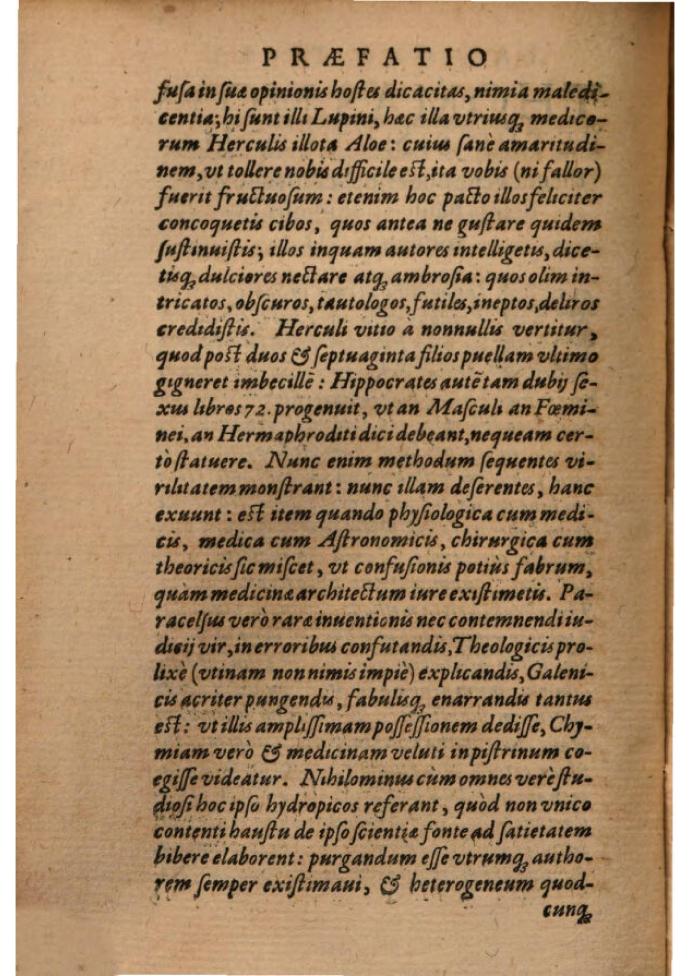 PRÆFATIO
fusa in suæ opinionis hostes dicacitas, nimia maledi-
centia; hi sunt illi Lupini, hæc illa vtriusq; medico-
rum Herculis illota Aloe: cuius sanè amaritudi-
nem, vt tollere nobis difficile est, ita vobis (ni fallor)
fuerit fructuosum: etenim hoc pacto illos feliciter
concoquetis cibos, quos antea ne gustare quidem
sustinuistis; illos inquam autores intelligetis, dice-
tisq; dulciores nectare atq; ambrosia: quos olim in-
tricatos, obscuros, tautologos, futiles, ineptos, deliros
credidistis. Herculi vitio à nonnullis vertitur,
quod post duos & septuaginta filios puellam vltimo
gigneret imbecillē: Hippocrates autē tam dubij se-
xus libros 72. progenuit, vt an Masculi an Fœmi-
nei, an Hermaphroditi dici debeant, nequeam cer-
tò statuere. Nunc enim methodum sequentes vi-
rilitatem monstrant: nunc illam deserentes, hanc
exuunt: est item quando physiologica cum medi-
cis, medica cum Astronomicis, chirurgica cum
theoricis sic miscet, vt confusionis potiùs fabrum,
quàm medicinæ architectum iure existimetis. Pa-
racelsus verò raræ inuentionis nec contemnendi iu-
dicij vir, in erroribus confutandis, Theologicis pro-
lixè (vtinam non nimis impiè) explicandis, Galeni-
cis acriter pungendis, fabulisq; enarrandis tantus
est: vt illis amplissimam possessionem dedisse, Chy-
miam verò & medicinam veluti in pistrinum co-
egisse videatur. Nihilominus cum omnes verè stu-
diosi hoc ipso hydropicos referant, quòd non vnico
contenti haustu de ipso scientiæ fonte ad satietatem
bibere elaborent: purgandum esse vtrumq; autho-
rem semper existimaui, & heterogeneum quod-
cunq;